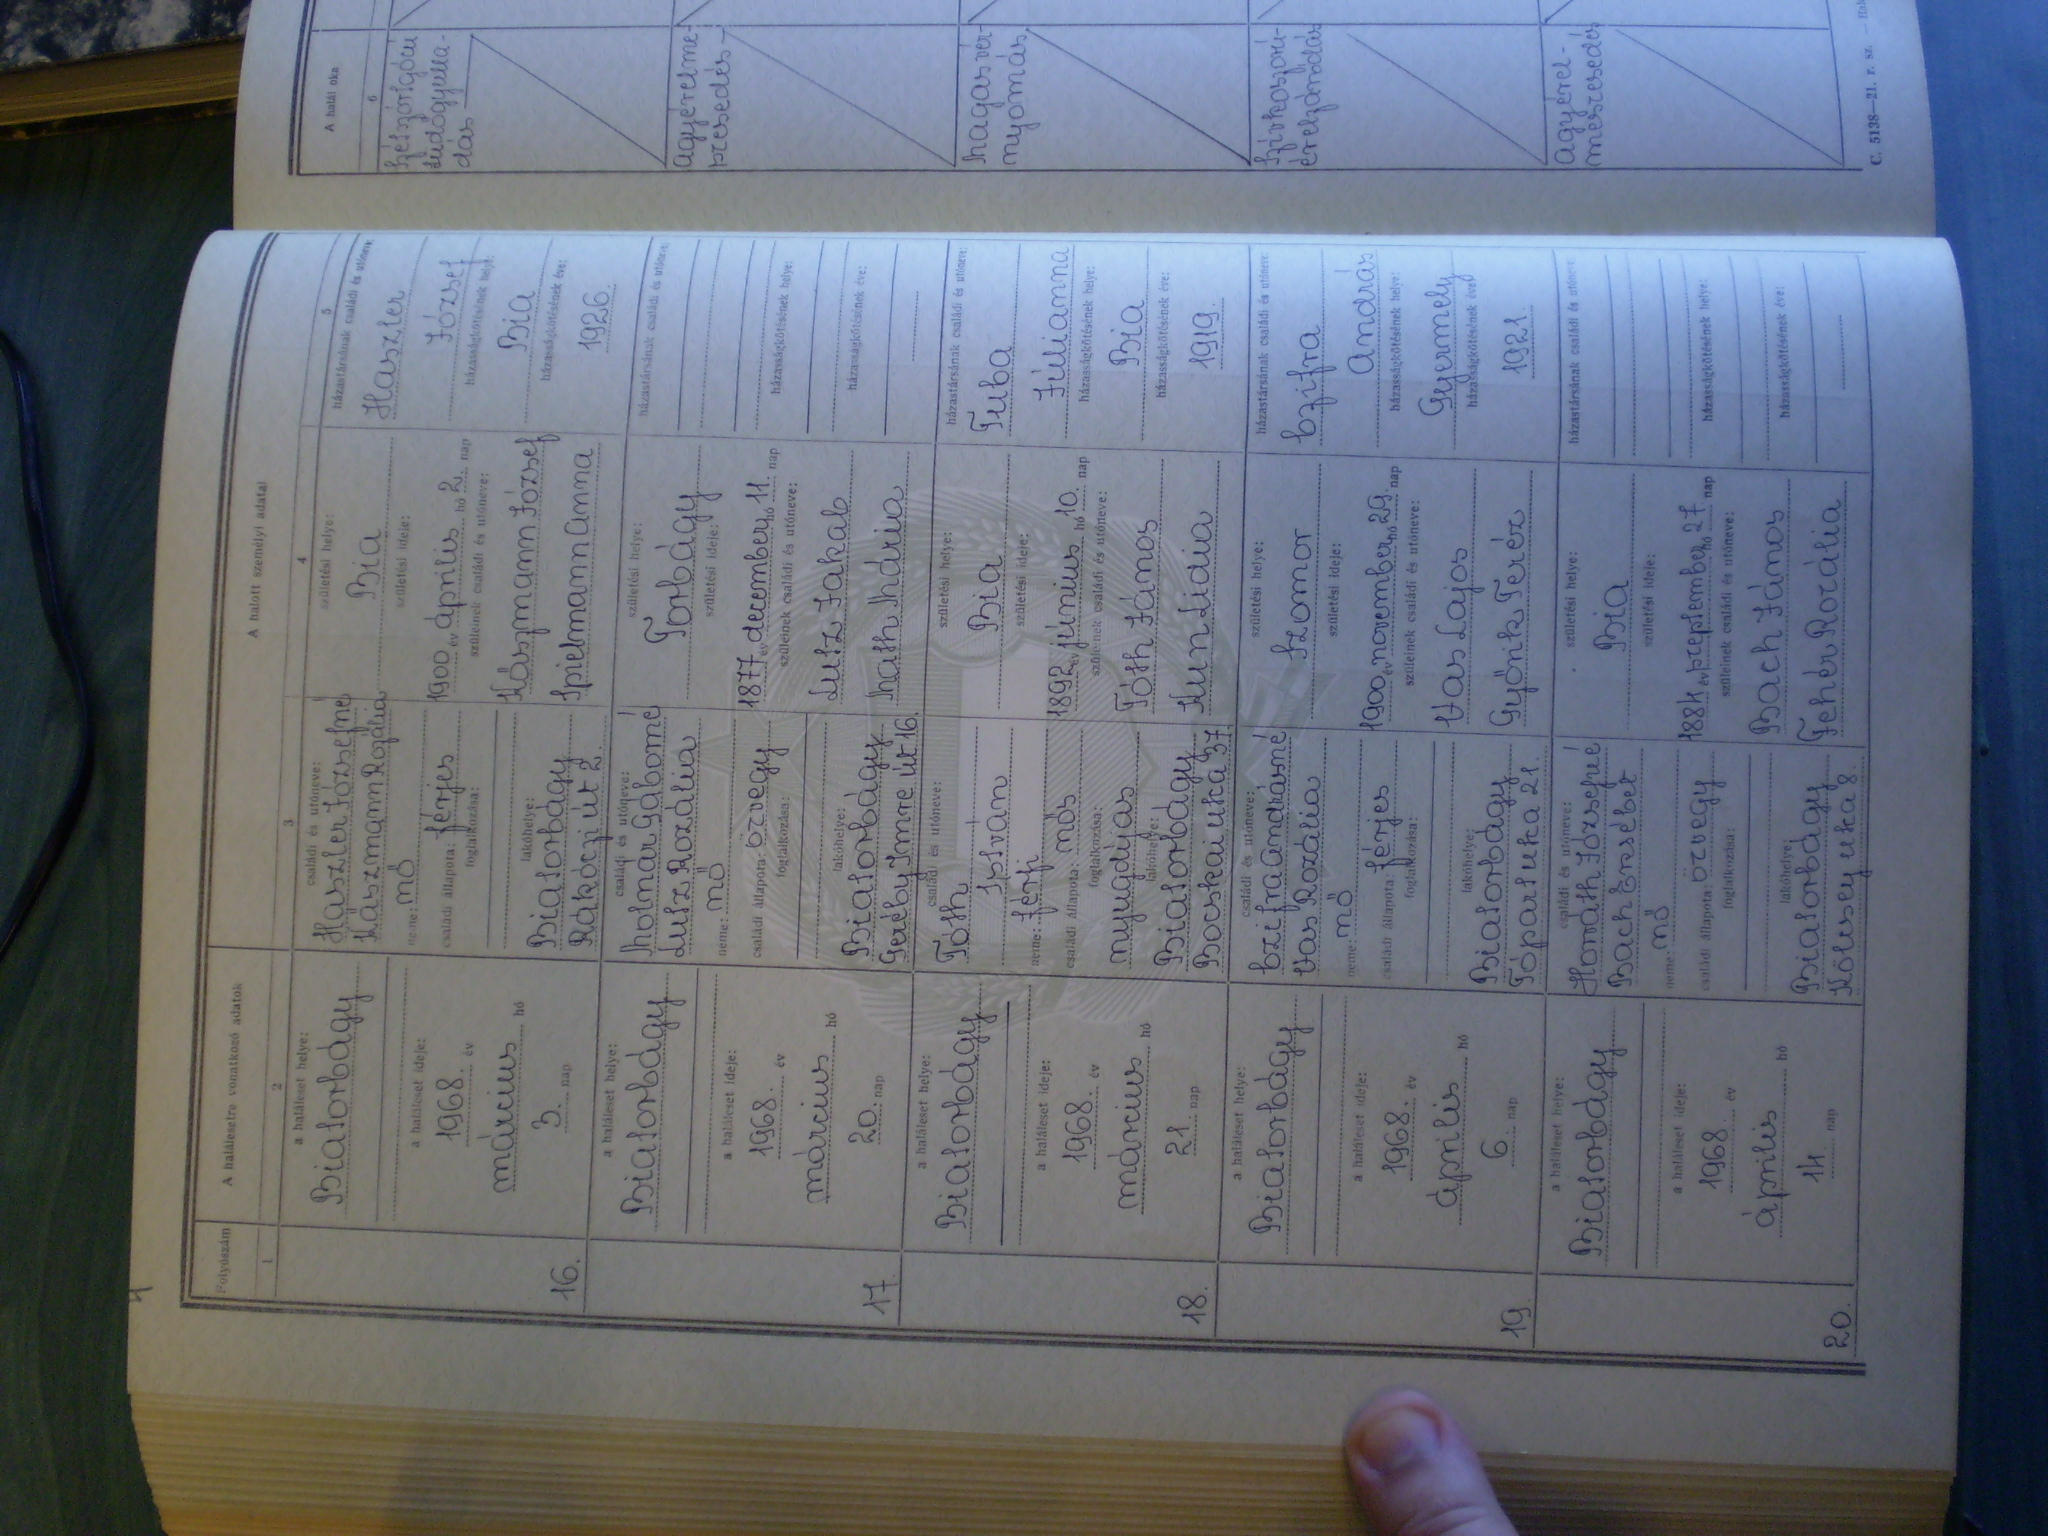 4
Folyószám
A halálesetre vonatkozó adatok
A halott személyi adatai
1
2
3
4
5
16.
a haláleset helye:
Biatorbágy
a haláleset ideje:
1968. év
március hó
3. nap
családi és utóneve:
Haszler Józsefné
Kászmann Rozália
neme: nő
családi állapota: férjes
foglalkozása:
lakóhelye:
Biatorbágy
Rákóczi út 2.
születési helye:
Bia
születési ideje:
1900 év április hó 2. nap
szüleinek családi és utóneve:
Kászmann József
Spielmann Anna
házastársának családi és utóneve:
Haszler
József
házasságkötésének helye:
Bia
házasságkötésének éve:
1926.
17.
a haláleset helye:
Biatorbágy
a haláleset ideje:
1968. év
március hó
20. nap
családi és utóneve:
Molnár Gáborné
Lutz Rozália
neme: nő
családi állapota: özvegy
foglalkozása:
lakóhelye:
Biatorbágy
Geréby Imre út 16.
születési helye:
Torbágy
születési ideje:
1877 év december hó 11. nap
szüleinek családi és utóneve:
Lutz Jakab
Mária
házastársának családi és utóneve:
házasságkötésének helye:
házasságkötésének éve:
18.
a haláleset helye:
Biatorbágy
a haláleset ideje:
1968. év
március hó
21. nap
családi és utóneve:
Tóth
István
neme: férfi
családi állapota: nős
foglalkozása:
nyugdíjas
lakóhelye:
Biatorbágy
Bocskai utca 37.
születési helye:
Bia
születési ideje:
1892 év június hó 10. nap
szüleinek családi és utóneve:
Tóth János
Kun Lidia
házastársának családi és utóneve:
Tuba
Júlianna
házasságkötésének helye:
Bia
házasságkötésének éve:
1919.
19.
a haláleset helye:
Biatorbágy
a haláleset ideje:
1968. év
április hó
6. nap
családi és utóneve:
Czifra Andrásné
Vas Rozália
neme: nő
családi állapota: férjes
foglalkozása:
lakóhelye:
Biatorbágy
Tópart utca 21.
születési helye:
Szomor
születési ideje:
1900 év november hó 29. nap
szüleinek családi és utóneve:
Vas Lajos
Gyönk Teréz
házastársának családi és utóneve:
Czifra
András
házasságkötésének helye:
Gyermely
házasságkötésének éve:
1921.
20.
a haláleset helye:
Biatorbágy
a haláleset ideje:
1968. év
április hó
14. nap
családi és utóneve:
Horváth Józsefné
Bach Erzsébet
neme: nő
családi állapota: özvegy
foglalkozása:
lakóhelye:
Biatorbágy
Kölcsey utca 8.
születési helye:
Bia
születési ideje:
1884 év szeptember hó 27. nap
szüleinek családi és utóneve:
Bach János
Fehér Rozália
házastársának családi és utóneve:
házasságkötésének helye:
házasságkötésének éve:
A halál oka
6
kétszótgócú
tüdőgyulla-
dás
agyérelme-
szesedés
magasvér-
nyomás
szívkoszorú-
érelzáródás
agyérel-
meszesedés
C. 5138—21. r. sz.